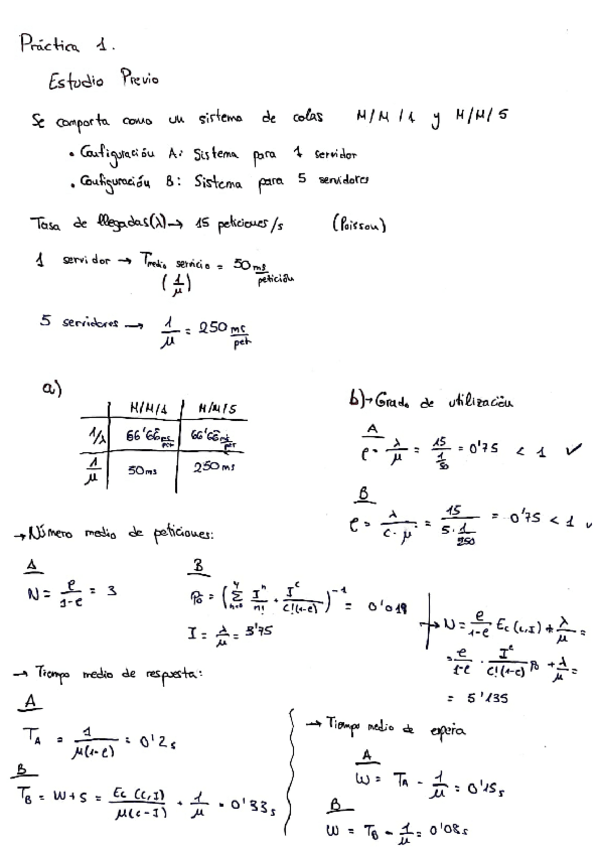 Práctica 1.
Estudio Previo
Se comporta como un sistema de colas M/M/1 y M/M/5
• Configuración A: Sistema para 1 servidor
• Configuración B: Sistema para 5 servidores
Tasa de llegadas(λ) → 15 peticiones/s (Poisson)
1 servidor → Tmedio servicio = 50 ms/petición
(1/μ)
5 servidores → 1/μ = 250 ms/pet
a)
M/M/1 M/M/5
1/λ 66'66 ms/pet 66'66 ms/pet
1/μ 50ms 250 ms
b) → Grado de utilización
A
ρ = λ/μ = 15/(1/50) = 0'75 < 1 ✓
B
ρ = λ/(c·μ) = 15/(5·1/250) = 0'75 < 1 ✓
→ Número medio de peticiones:
A
N = ρ/(1-ρ) = 3
B
P₀ = (∑ⁿ₌₀⁴ Iⁿ/n! + Iᶜ/(c!(1-ρ)))⁻¹ = 0'019
I = λ/μ = 3'75
→ N = ρ/(1-ρ) Ec(c,I) + λ/μ =
= ρ/(1-ρ) · Iᶜ/(c!(1-ρ)) P₀ + λ/μ =
= 5'135
→ Tiempo medio de respuesta:
A
T_A = 1/(μ(1-ρ)) = 0'2s
B
T_B = W+S = Ec(c,I)/(μ(c-I)) + 1/μ = 0'33s
→ Tiempo medio de espera
A
W = T_A - 1/μ = 0'15s
B
W = T_B - 1/μ = 0'08s